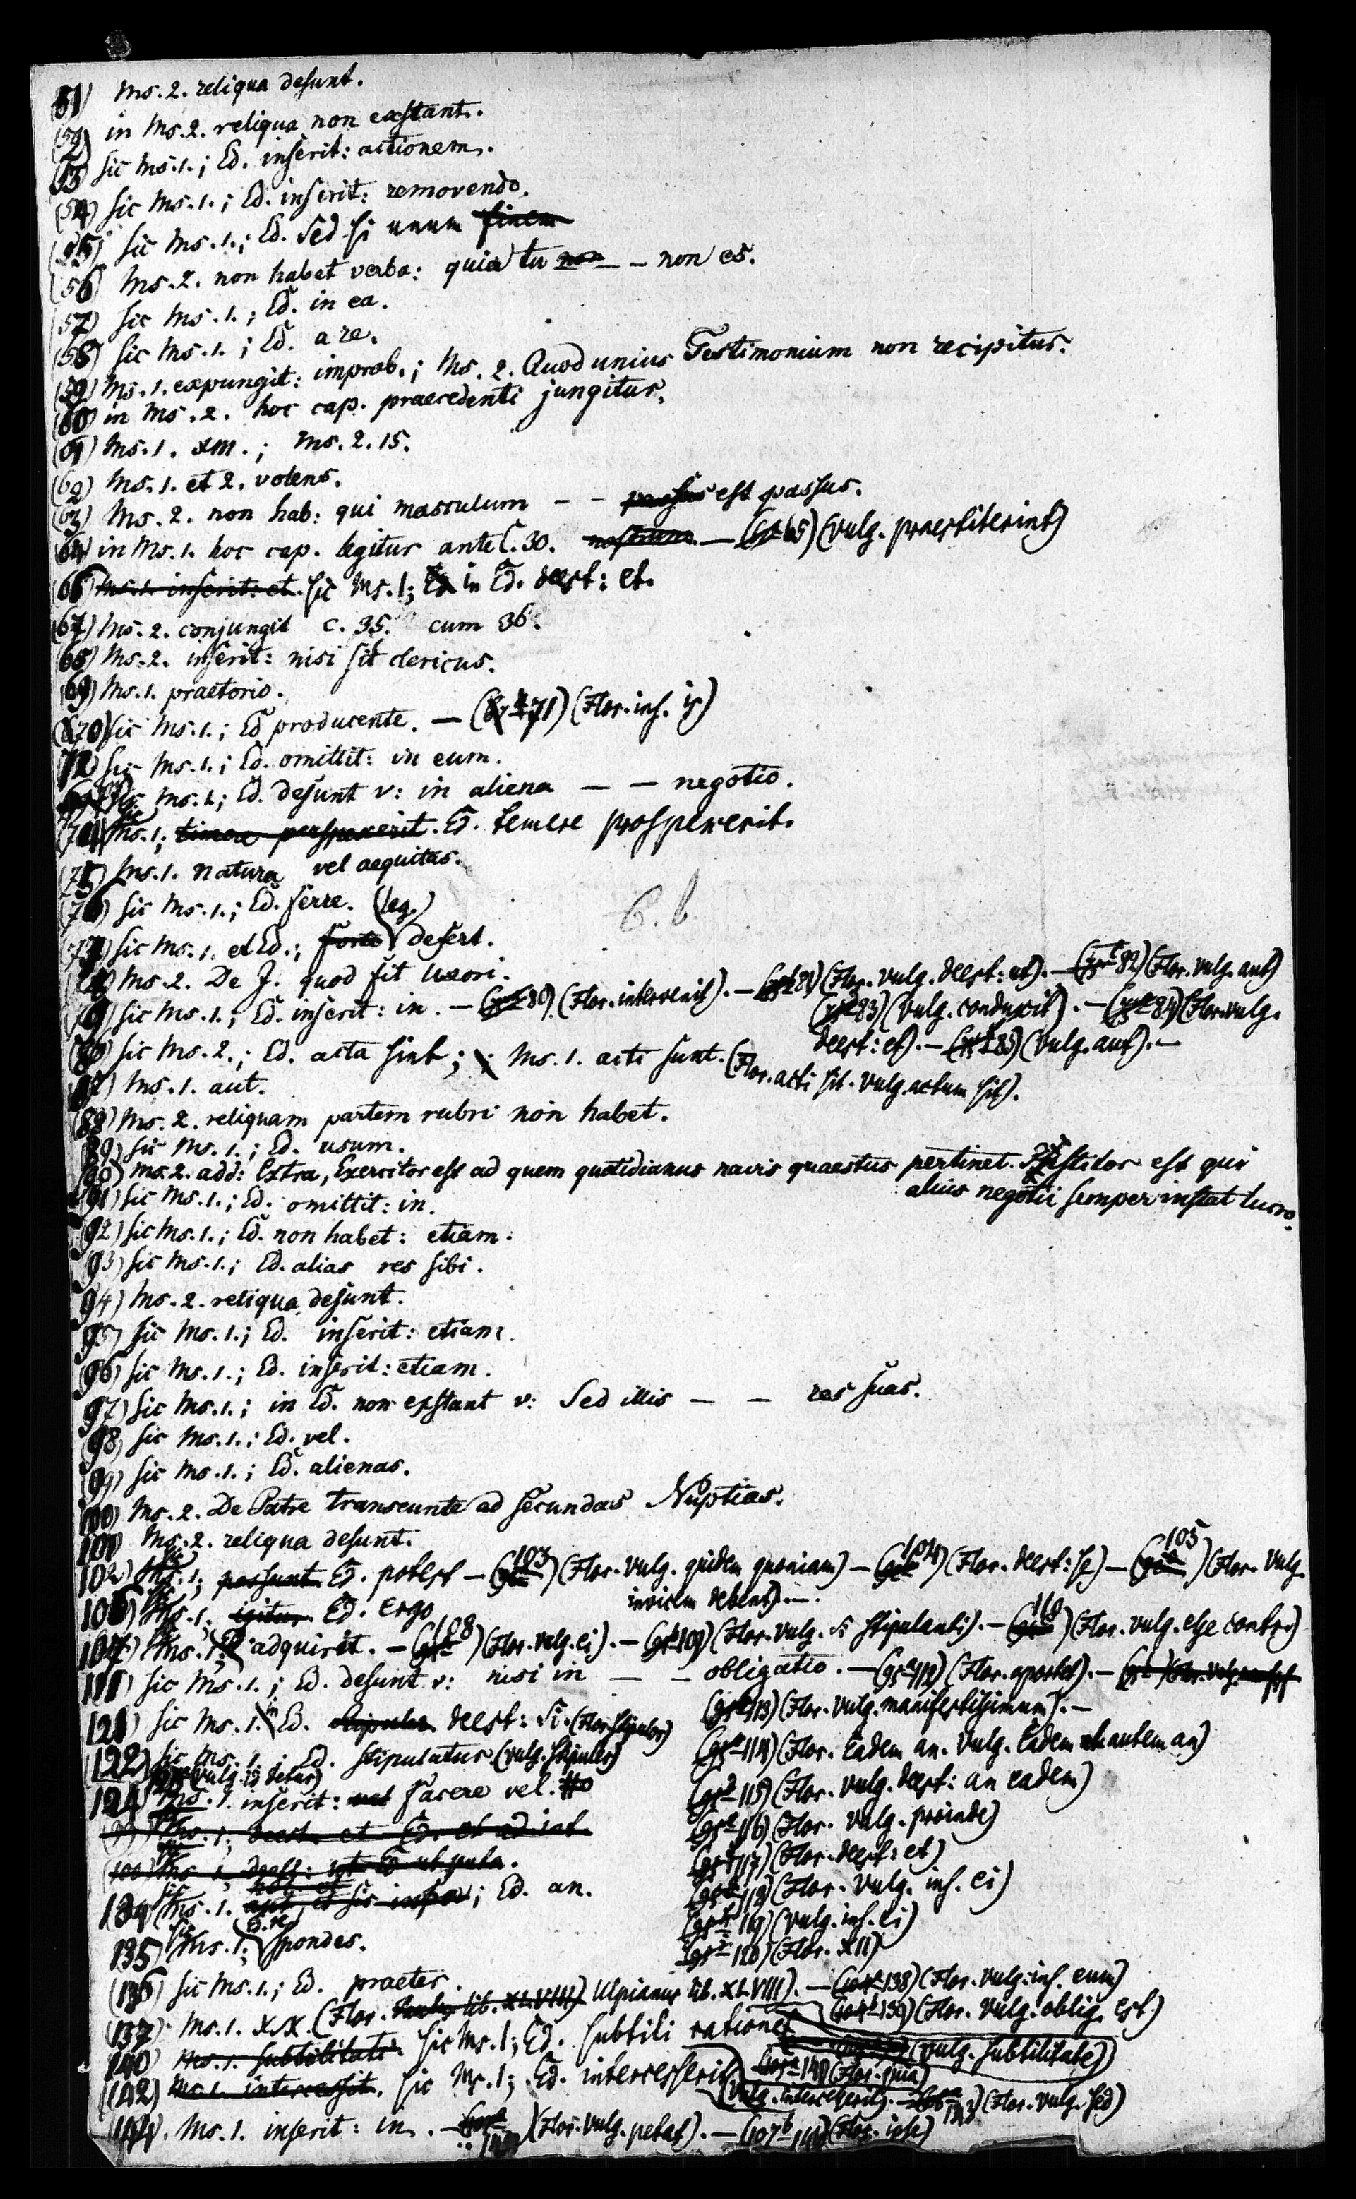 51) Ms. 2. reliqua desunt.
(52) in Ms. 2. reliqua non exstant.
53) sic Ms. 1.; Ed. inserit: actionem.
(54) sic Ms. 1.; Ed. inserit: removendo.
(55) sic Ms. 1.; Ed. sed si unum finem
(56) Ms. 2. non habet verba: quia tu non — — non es.
(57) sic Ms. 1.; Ed. in ea.
(58) sic Ms. 1.; Ed. a re.
(59) Ms. 1. expungit: improb.; Ms. 2. Quod unius Testimonium non recipitur.
(60) in Ms. 2. hoc cap. praecedenti jungitur.
(61) Ms. 1. XIII.; Ms. 2. 15.
(62) Ms. 1. et 2. volens.
(63) Ms. 2. non hab: qui masculum — — passus est passus.
(64) in Ms. 1. hoc cap. legitur ante C. 30. — 65) (Vulg. praestiterint)
(66) Ms. 1. inserit: et. sic Ms. 1; Ed. in Ed. deest: et.
(67) Ms. 2. conjungit c. 35. cum 36.
(68) Ms. 2. inserit: nisi sit clericus.
(69) Ms. 1. praetorio.
(70) sic Ms. 1.; Ed producente. — 71) (Flor. ins. is)
72) sic Ms. 1.; Ed. omittit: in eum.
sic Ms. 1.; Ed. desunt v: in aliena — — negotio.
(74) sic Ms. 1; timore perspexerit. Ed. temere prospexerit.
(75) Ms. 1. natura vel aequitas.
(76) sic Ms. 1.; Ed. ferre.
6. b
(77) sic Ms. 1. et Ed.; forte (leg.) desert.
Ms. 2. De J. quod fit uxori.
79) sic Ms. 1.; Ed. inserit: in. — 80) (Flor. intervenit). — 81) (Flor. Vulg. deest: et). — 82) (Flor. Vulg. aut)
83) (Vulg. conduxit). — 84) (Flor. Vulg.
deest: et). — 85) (Vulg. aut). —
(86) sic Ms. 2.; Ed. acta sint; Ms. 1. acti sunt. (Flor. acti sit. Vulg. actum sit).
87) Ms. 1. aut.
(88) Ms. 2. reliquam partem rubri non habet.
(89) sic Ms. 1.; Ed. usum.
(90) Ms. 2. add: Extra, Exercitor est ad quem quotidianus navis quaestus pertinet. Institor est qui
alius negotii semper instat lucro.
(91) sic Ms. 1.; Ed. omittit: in.
92) sic Ms. 1.; Ed. non habet: etiam.
93) sic Ms. 1.; Ed. alias res sibi.
94) Ms. 2. reliqua desunt.
95) sic Ms. 1.; Ed. inserit: etiam.
(96) sic Ms. 1.; Ed. inserit: etiam.
97) sic Ms. 1.; in Ed. non exstant v: Sed illis — — res suas.
(98) sic Ms. 1.; Ed. vel.
(99) sic Ms. 1.; Ed. alienas.
100) Ms. 2. De Patre transeunte ad secundas Nuptias.
101) Ms. 2. reliqua desunt.
102) sic Ms. 1; possunt Ed. potest — 103) (Flor. Vulg. quidem quoniam) — 104) (Flor. deest: se) — 105) (Flor. Vulg.
invicem debent). —
106) sic Ms. 1. igitur Ed. Ergo
107) Ms. 1. Ed. adquirit. — 108) (Flor. Vulg. ei). — 109) (Flor. Vulg. si stipulanti). — 110) (Flor. Vulg. esse contra)
111) sic Ms. 1.; Ed. desunt v: nisi in — — obligatio. — 112) (Flor. oportet). —
113) (Flor. Vulg. manifestissimum). —
121) sic Ms. 1. in Ed. stipulu deest: si. (Flor. stipulor)
114) (Flor. Eadem an. Vulg. Eadem autem an)
(122) sic Ms. 1.; Ed. stipulatur (Vulg. stipuler)
115) (Flor. Vulg. deest: an eadem)
124) Ms. 1. inserit: facere vel.
116) (Flor. Vulg. proinde)
Ms. 1. deest: et Ed. et ad
117) (Flor. deest: et)
(100) Ms. 1. deest: Ed. ut puta.
118) (Flor. Vulg. ins. ei)
134) sic Ms. 1. aut; Ed. an.
119) (Vulg. ins. ei)
135) sic Ms. 1; Ed. respondes.
120) (Flor. XII)
(136) sic Ms. 1.; Ed. praeter. — 138) (Flor. Vulg. ins. eum)
(137) Ms. 1. XIX. (Flor. Paulus lib. XLVIII) Ulpianus lib. XLVIII). — 139) (Flor. Vulg. oblig. est)
140) Ms. 1. subtilitati. sic Ms. 1; Ed. subtili ratione (Vulg. subtilitate)
141) (Flor. quia)
(142) Ms. 1. intercessit. sic Ms. 1; Ed. intercesserit (Vulg. intercesserit). — 143) (Flor. Vulg. sed)
(144). Ms. 1. inserit: in. — (Flor. Vulg. petat). — (Flor. ipse)